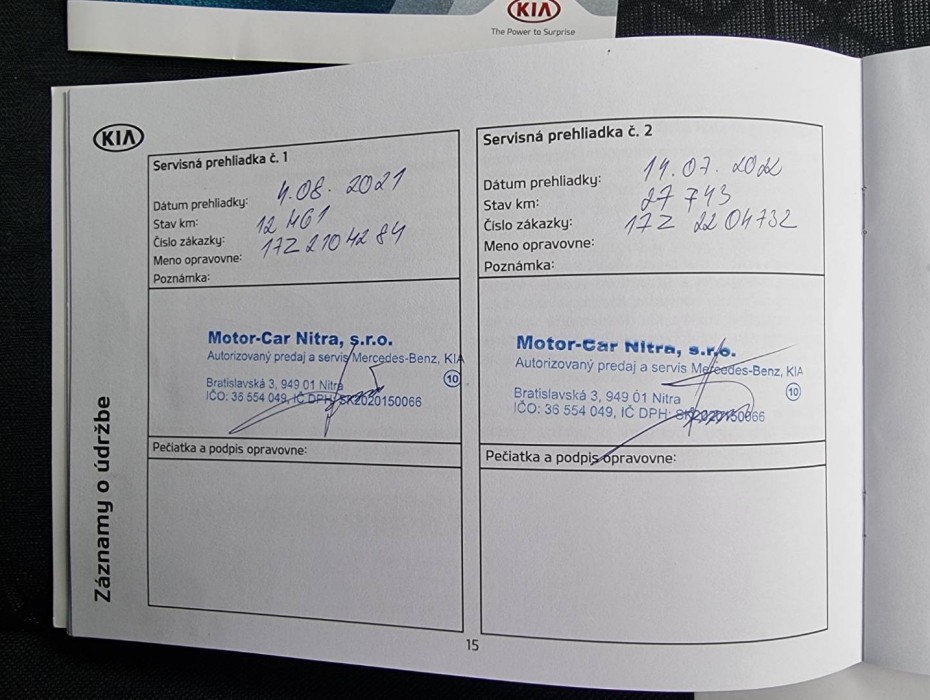 KIA
The Power to Surprise
KIA
Záznamy o údržbe
Servisná prehliadka č. 1
Dátum prehliadky: 4.08. 2021
Stav km: 12 461
Číslo zákazky: 17Z2104284
Meno opravovne:
Poznámka:
Motor-Car Nitra, s.r.o.
Autorizovaný predaj a servis Mercedes-Benz, KIA
10
Bratislavská 3, 949 01 Nitra
IČO: 36 554 049, IČ DPH: SK2020150066
Pečiatka a podpis opravovne:
Servisná prehliadka č. 2
Dátum prehliadky: 14.07. 2022
Stav km: 27 743
Číslo zákazky: 17Z 2204732
Meno opravovne:
Poznámka:
Motor-Car Nitra, s.r.o.
Autorizovaný predaj a servis Mercedes-Benz, KIA
10
Bratislavská 3, 949 01 Nitra
IČO: 36 554 049, IČ DPH: SK2020150066
Pečiatka a podpis opravovne:
15